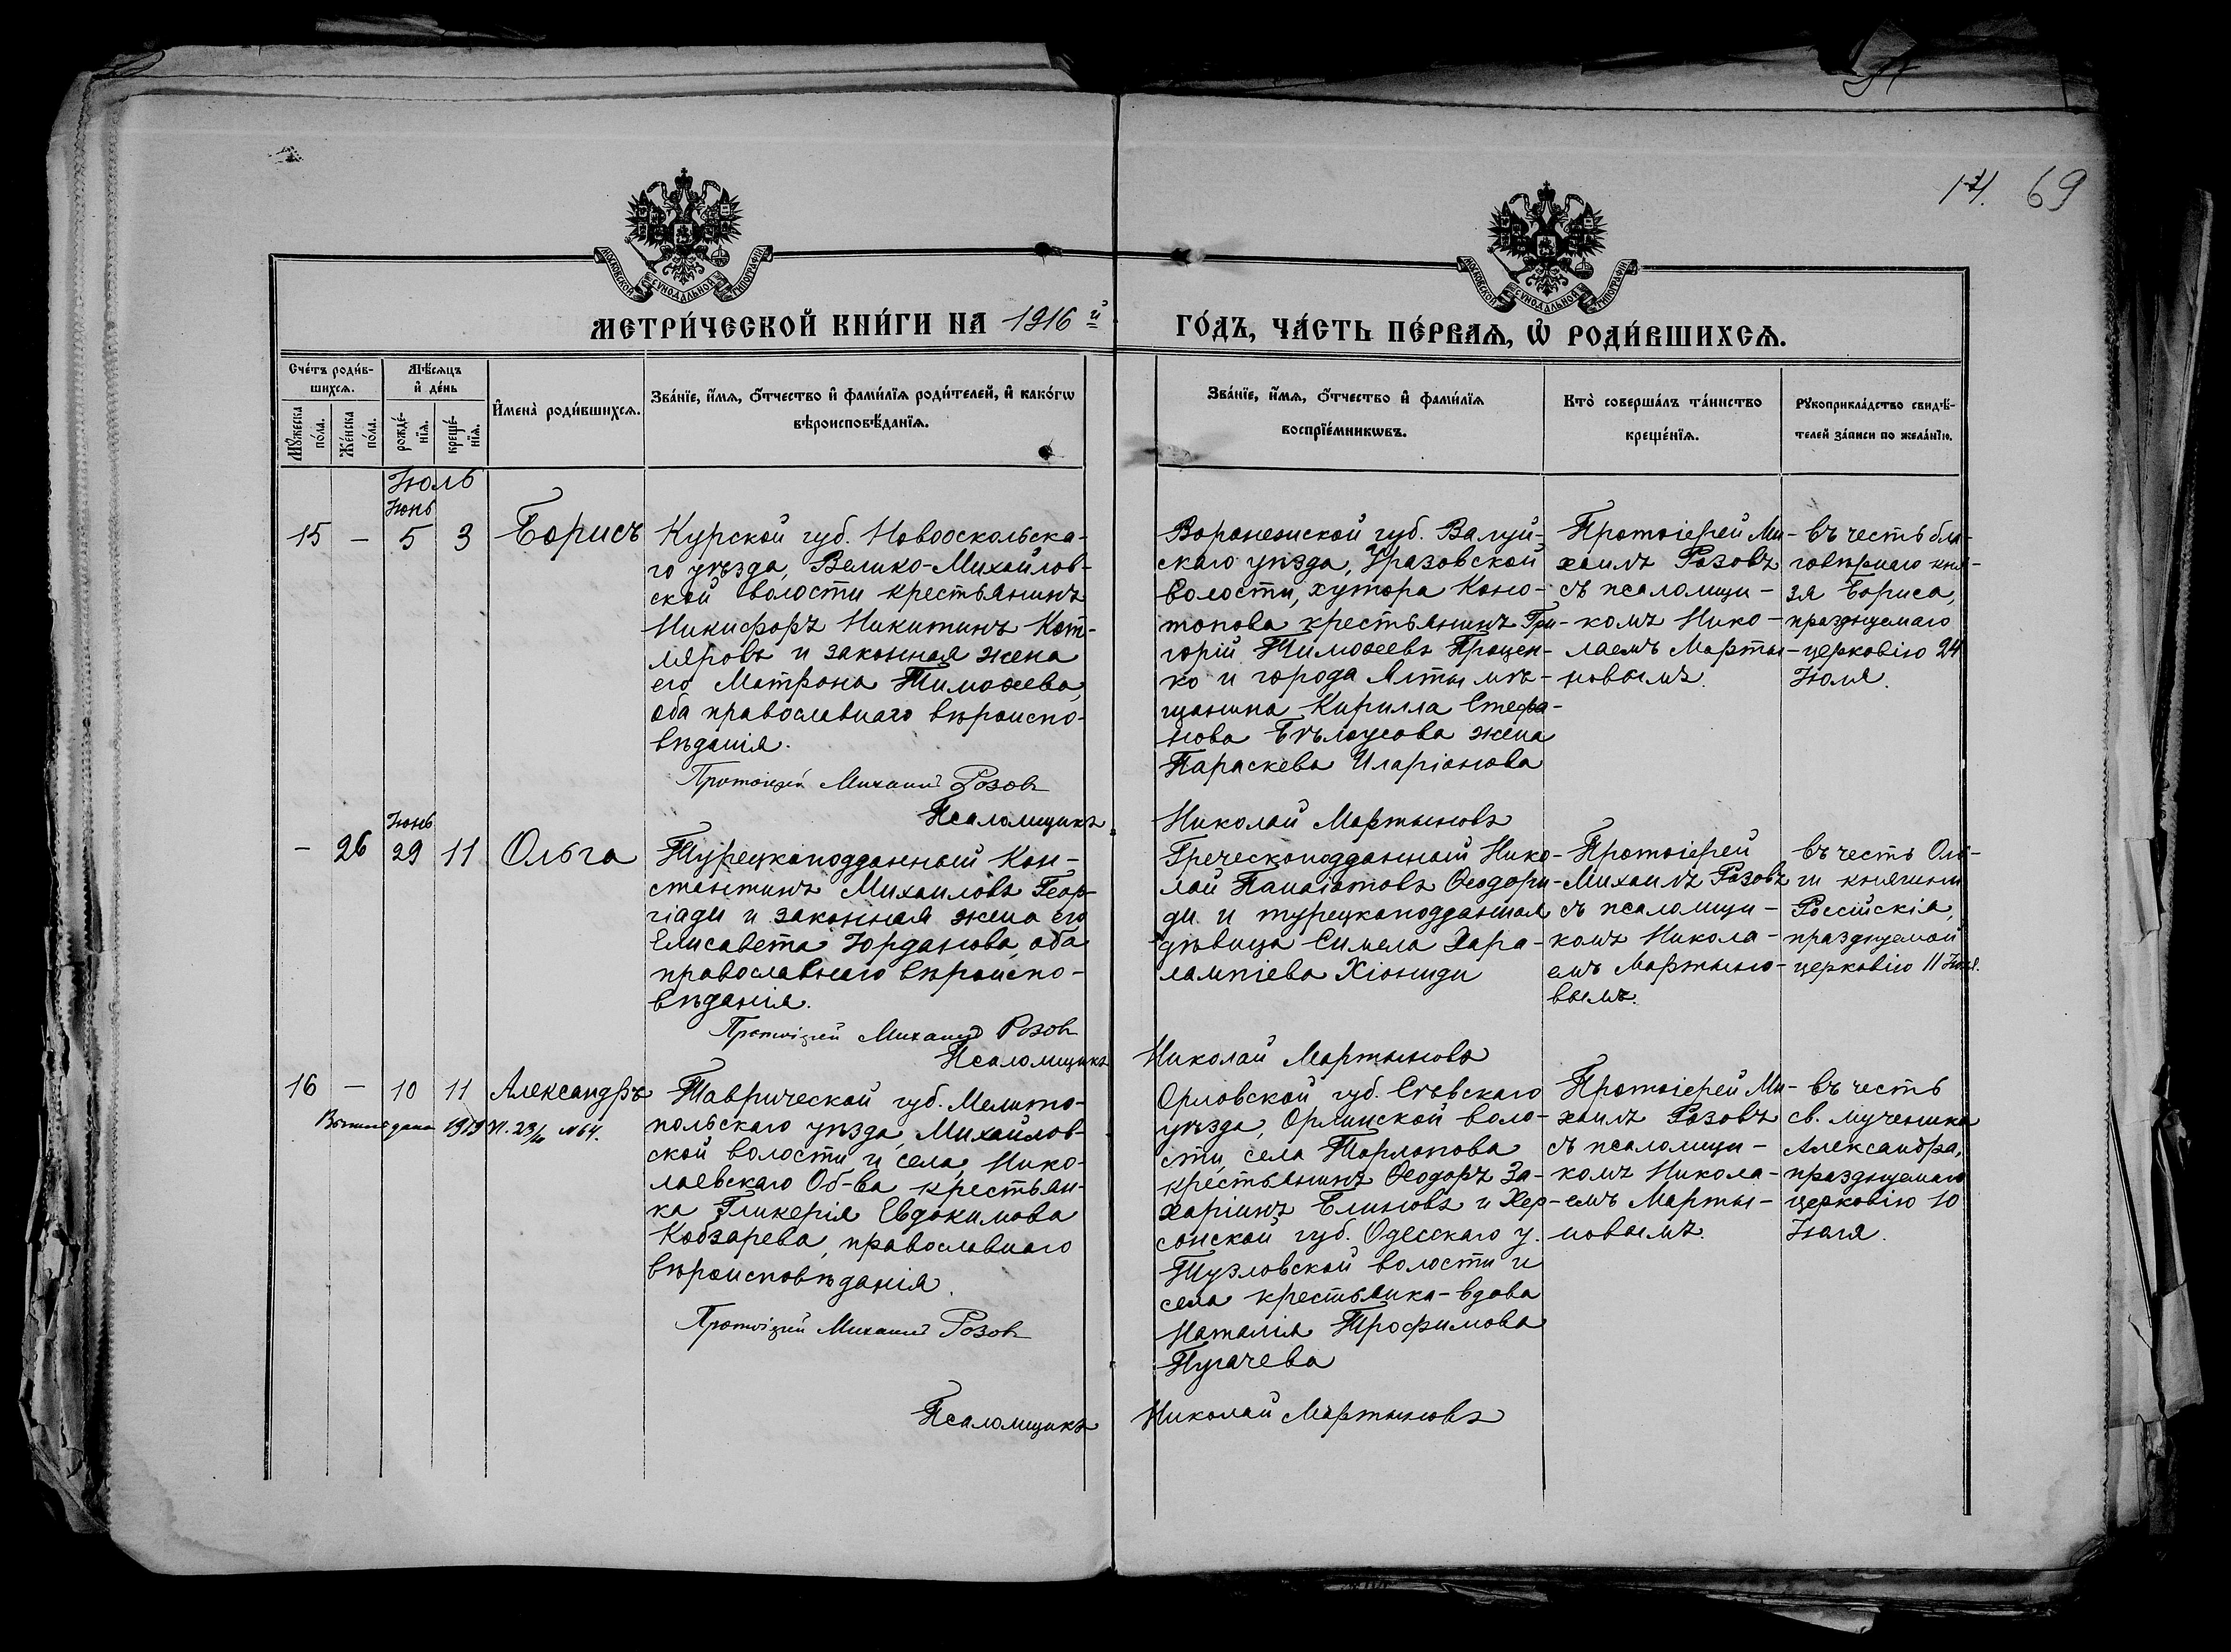 14. 69
МОСКОВСКОЙ СУНОДАЛЬНОЙ ТИПОГРАФІИ
МОСКОВСКОЙ СУНОДАЛЬНОЙ ТИПОГРАФІИ
МЕТРИ́ЧЕСКОЙ КНИ́ГИ НА 1916й ГО́ДЪ, ЧА́СТЬ ПЕ́РВАѦ, Ѡ҆ РОДИ́ВШИХСѦ.
Сче́тъ роди́в-
шихсѧ.
Мꙋ́жеска по́ла.
Же́нска по́ла.
Мѣ́сѧцъ
и҆ де́нь
рожде́-
нїѧ.
креще́-
нїѧ.
И҆мена̀ роди́вшихсѧ.
Зва́нїе, и҆́мѧ, ѻ҆́тчество и҆ фами́лїѧ роди́телей, и҆ како́гѡ
вѣроисповѣ́данїѧ.
Зва́нїе, и҆́мѧ, ѻ҆́тчество и҆ фами́лїѧ
воспрїе́мникѡвъ.
Кто̀ соверша́лъ та́инство
креще́нїѧ.
Рꙋкоприкла́дство свидѣ́-
телей за́писи по жела́нїю.
Іюль
Іюнь
15 - 5 3 Борисъ
Курской губ. Новооскольска-
го уѣзда, Велико-Михайлов-
ской волости крестьянинъ
Никифоръ Никитинъ Кот-
ляровъ и законная жена
его Матрона Тимоѳеева,
оба православнаго вѣроиспо-
вѣданія.
Протоіерей Михаилъ Розовъ
Псаломщикъ
Воронежской губ. Валуй-
скаго уѣзда, Уразовской
волости, хутора Коно-
топова крестьянинъ Гри-
горій Тимоѳеевъ Процен-
ко и города Ялты мѣ-
щанина Кирилла Стефа-
нова Бѣлоусова жена
Параскева Иларіонова
Николай Мартыновъ
Протоіерей Ми-
хаилъ Розовъ
съ псаломщи-
комъ Нико-
лаемъ Марты-
новымъ.
въ честь бла-
говѣрнаго кня-
зя Бориса,
празднуемаго
церковію 24
Іюля.
Іюнь
- 26 29 11 Ольга
Турецкоподданный Кон-
стантинъ Михаиловъ Геор-
гіади и законная жена его
Елисавета Іорданова, оба
православнаго вѣроиспо-
вѣданія.
Протоіерей Михаилъ Розовъ
Псаломщикъ
Греческоподданный Нико-
лай Панаіотовъ Ѳеодори-
ди и турецкоподданная
дѣвица Симела Хара-
лампіева Хіониди
Николай Мартыновъ
Протоіерей
Михаилъ Розовъ
съ псаломщи-
комъ Никола-
емъ Мартыно-
вымъ.
въ честь Оль-
ги княгини
Россійскія,
празднуемой
церковію 11 Іюля.
16 - 10 11 Александръ
Выпись дана 1919 № 64.
Таврической губ. Мелито-
польскаго уѣзда, Михайлов-
ской волости и села, Нико-
лаевскаго Об-ва крестьян-
ка Гликерія Евдокимова
Кобзарева, православнаго
вѣроисповѣданія.
Протоіерей Михаилъ Розовъ
Псаломщикъ
Орловской губ. Сѣвскаго
уѣзда, Орлинской воло-
сти, села Торлопова
крестьянинъ Ѳеодоръ За-
харіинъ Блиновъ и Хер-
сонской губ. Одесскаго у.
Тузловской волости и
села крестьянка-вдова
Наталія Трофимова
Пугачева
Николай Мартыновъ
Протоіерей Ми-
хаилъ Розовъ
съ псаломщи-
комъ Никола-
емъ Марты-
новымъ.
въ честь
св. мученика
Александра,
празднуемаго
церковію 10
Іюля.